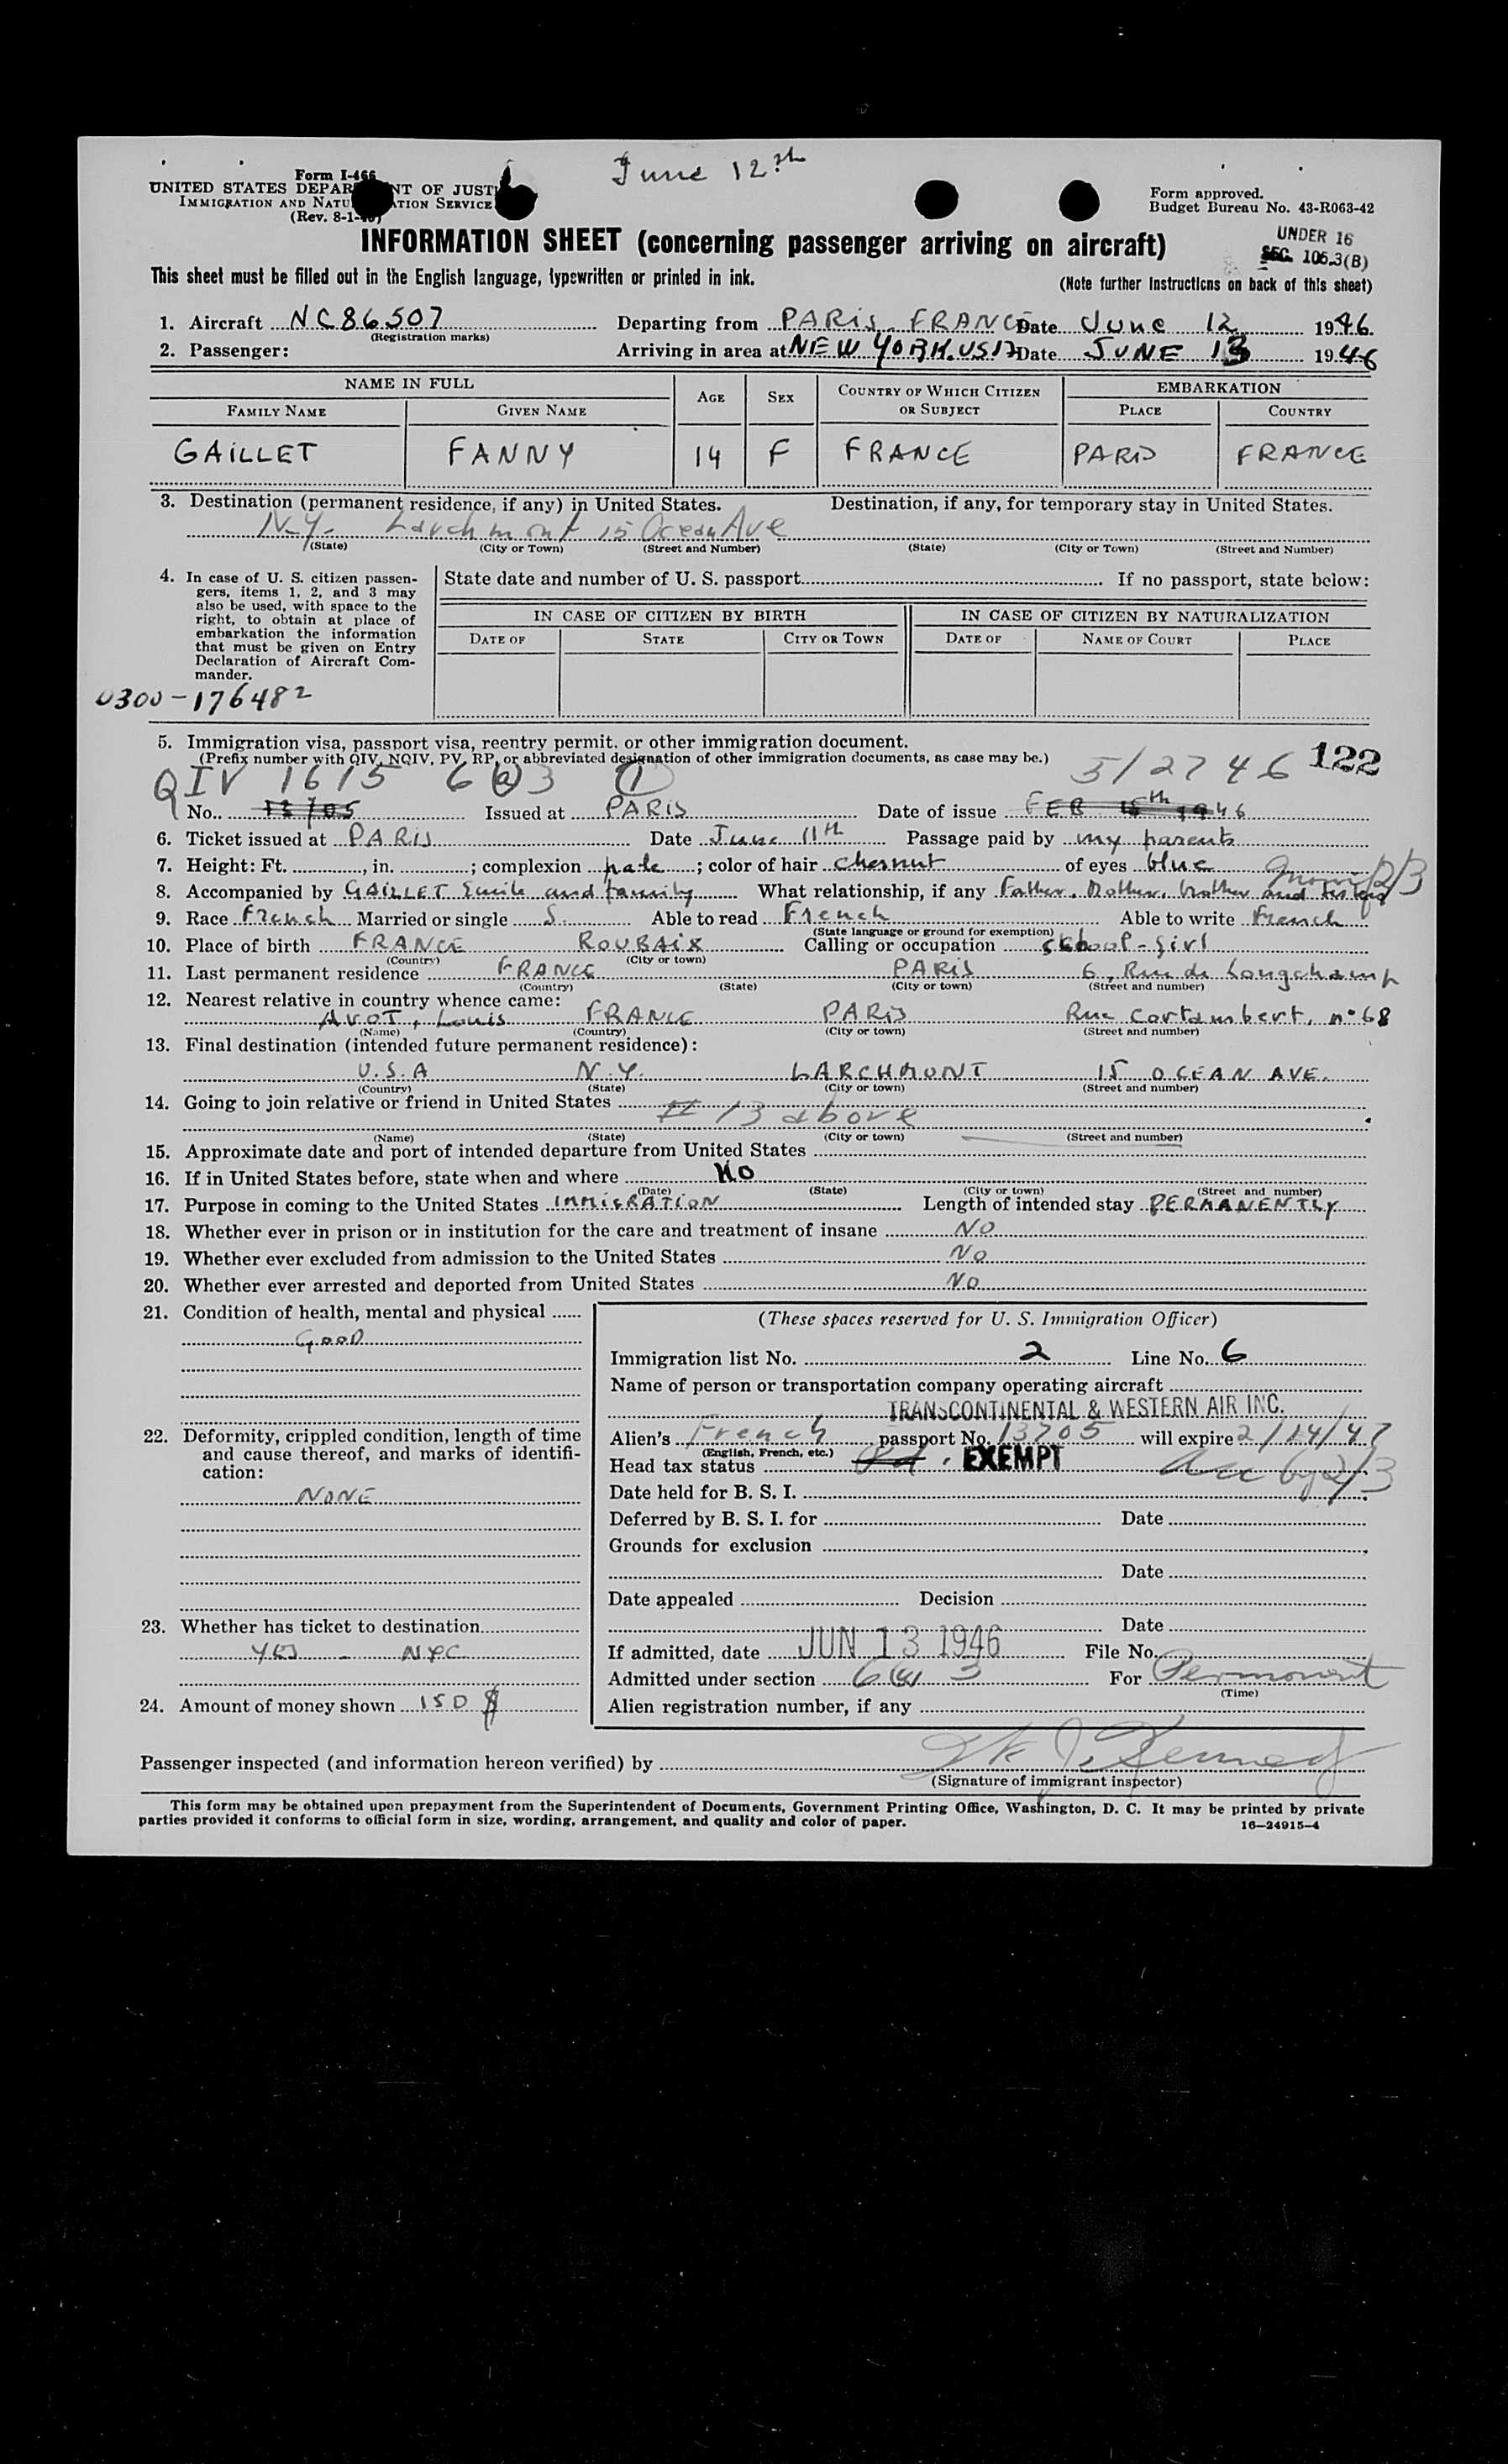 June 12th
Form I-466
UNITED STATES DEPARTMENT OF JUSTICE
IMMIGRATION AND NATURALIZATION SERVICE
(Rev. 8-1-
Form approved.
Budget Bureau No. 43-R063-42
INFORMATION SHEET (concerning passenger arriving on aircraft)
UNDER 16
SEC. 105.3(B)
This sheet must be filled out in the English language, typewritten or printed in ink.
(Note further instructions on back of this sheet)
1. Aircraft NC86507 Departing from PARIS, FRANCE Date June 12 1946
(Registration marks)
2. Passenger: Arriving in area at NEW YORK. USA Date JUNE 13 1946
NAME IN FULL AGE SEX COUNTRY OF WHICH CITIZEN OR SUBJECT EMBARKATION
FAMILY NAME GIVEN NAME PLACE COUNTRY
GAILLET FANNY 14 F FRANCE PARIS FRANCE
3. Destination (permanent residence, if any) in United States. Destination, if any, for temporary stay in United States.
N.Y. Larchmont 15 Ocean Ave
(State) (City or Town) (Street and Number) (State) (City or Town) (Street and Number)
4. In case of U. S. citizen passen-
gers, items 1, 2, and 3 may
also be used, with space to the
right, to obtain at place of
embarkation the information
that must be given on Entry
Declaration of Aircraft Com-
mander.
State date and number of U. S. passport If no passport, state below:
IN CASE OF CITIZEN BY BIRTH IN CASE OF CITIZEN BY NATURALIZATION
DATE OF STATE CITY OR TOWN DATE OF NAME OF COURT PLACE
0300-176482
5. Immigration visa, passport visa, reentry permit, or other immigration document.
(Prefix number with QIV, NQIV, PV, RP, or abbreviated designation of other immigration documents, as case may be.)
122
QIV 1615 6(a)3 (1) 5/27 46
No. 13705 Issued at PARIS Date of issue FEB 15th 1946
6. Ticket issued at PARIS Date June 11th Passage paid by my parents
7. Height: Ft. , in. ; complexion pale ; color of hair chesnut of eyes blue
8. Accompanied by GAILLET Emile and family What relationship, if any Father, Mother, brother and
9. Race French Married or single S. Able to read French Able to write French
(State language or ground for exemption)
10. Place of birth FRANCE ROUBAIX Calling or occupation school-girl
(Country) (City or town)
11. Last permanent residence FRANCE PARIS 6, Rue de Longchamp
(Country) (State) (City or town) (Street and number)
12. Nearest relative in country whence came:
AVOT, Louis FRANCE PARIS Rue Cortambert, n° 68
(Name) (Country) (City or town) (Street and number)
13. Final destination (intended future permanent residence):
U.S.A N.Y. LARCHMONT 15 OCEAN AVE.
(Country) (State) (City or town) (Street and number)
14. Going to join relative or friend in United States # 13 above
(Name) (State) (City or town) (Street and number)
15. Approximate date and port of intended departure from United States
16. If in United States before, state when and where NO
(Date) (State) (City or town) (Street and number)
17. Purpose in coming to the United States IMMIGRATION Length of intended stay PERMANENTLY
18. Whether ever in prison or in institution for the care and treatment of insane NO
19. Whether ever excluded from admission to the United States NO
20. Whether ever arrested and deported from United States NO
21. Condition of health, mental and physical
GOOD
22. Deformity, crippled condition, length of time
and cause thereof, and marks of identifi-
cation:
NONE
23. Whether has ticket to destination
YES - NYC
24. Amount of money shown 150 $
(These spaces reserved for U. S. Immigration Officer)
Immigration list No. 2 Line No. 6
Name of person or transportation company operating aircraft
TRANSCONTINENTAL & WESTERN AIR INC.
Alien's French passport No. 13705 will expire 2/14/47
(English, French, etc.)
Head tax status EXEMPT
Date held for B. S. I.
Deferred by B. S. I. for Date
Grounds for exclusion
Date
Date appealed Decision
Date
If admitted, date JUN 13 1946 File No.
Admitted under section 6(a) 3 For Permanent
(Time)
Alien registration number, if any
Passenger inspected (and information hereon verified) by
(Signature of immigrant inspector)
This form may be obtained upon prepayment from the Superintendent of Documents, Government Printing Office, Washington, D. C. It may be printed by private
parties provided it conforms to official form in size, wording, arrangement, and quality and color of paper.
16—24915-4